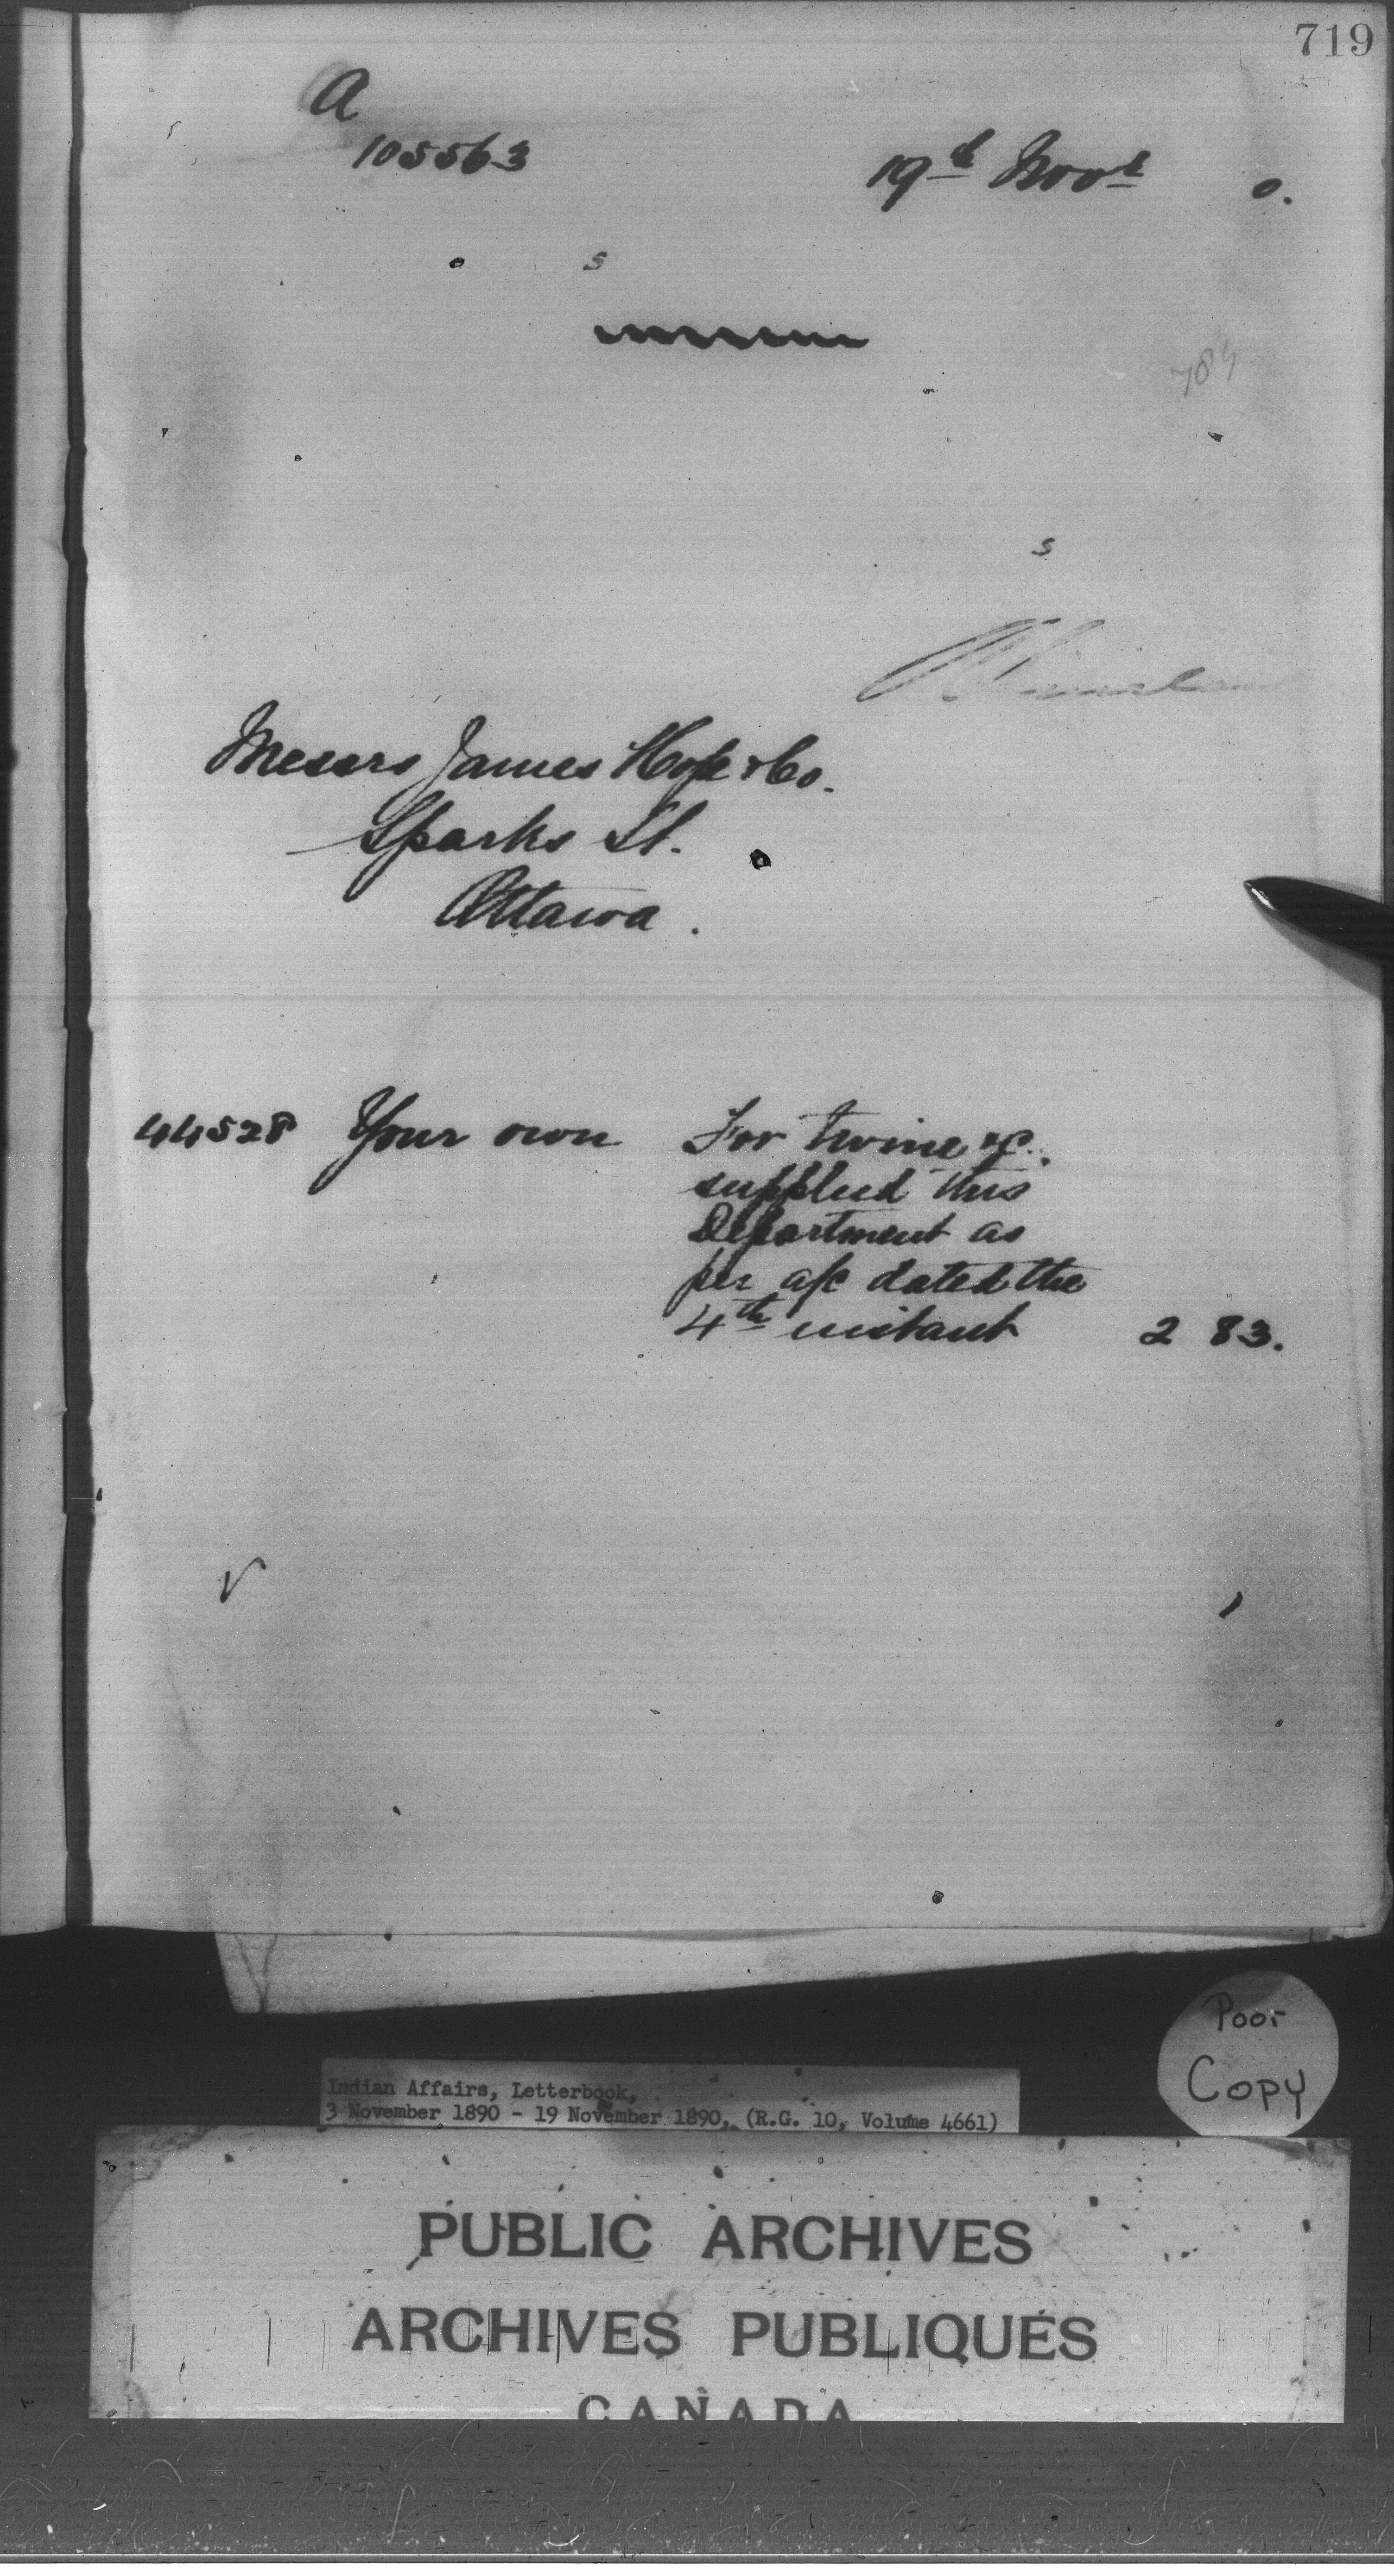 719
A
105563
19th Novr 0.
s
s
Messrs James Hope & Co.
Sparks St.
Ottawa.
44528 Your own For twine &c.
supplied this
Department as
per a/c dated the
4th instant 2 83.
Poor
Copy
Indian Affairs, Letterbook,
3 November 1890 - 19 November 1890, (R.G. 10, Volume 4661)
PUBLIC ARCHIVES
ARCHIVES PUBLIQUES
CANADA